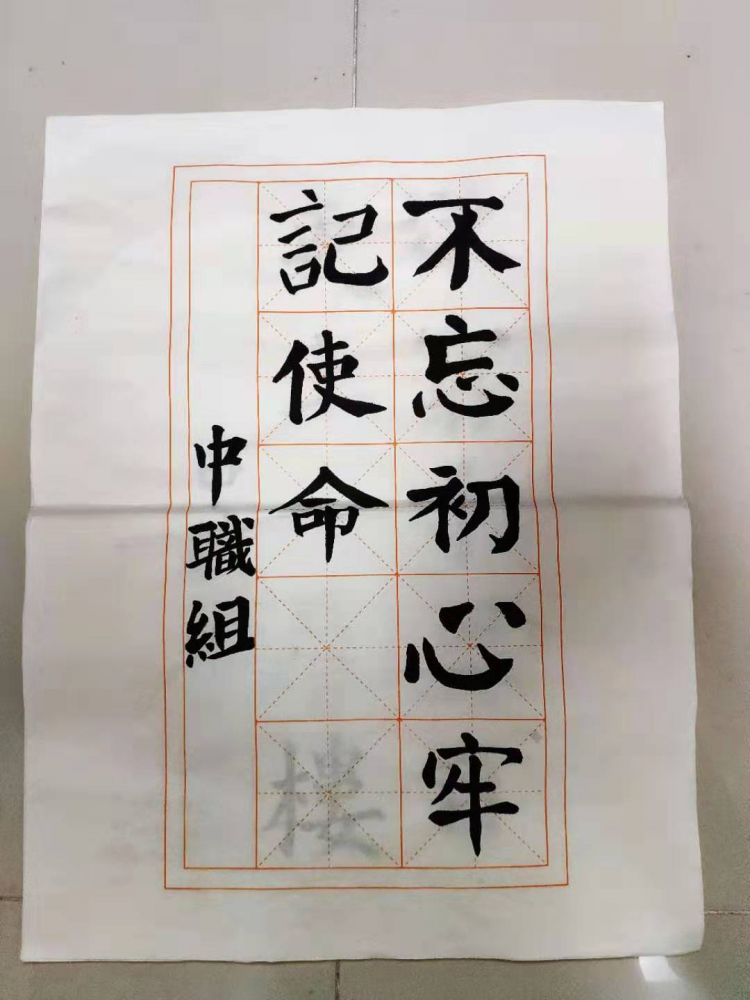 不忘初心牢
記使命
中職組
楼